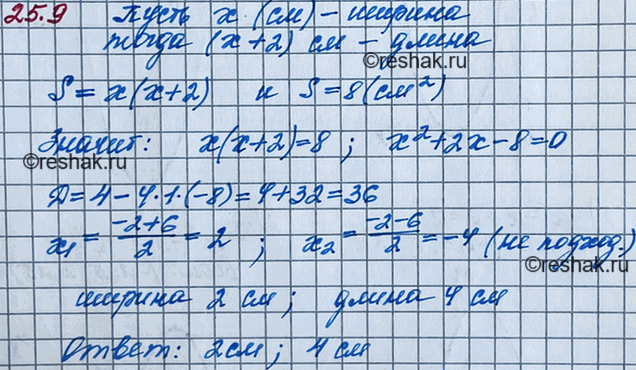 25.9 Пусть x (см) – ширина
тогда (x+2) см – длина
S = x(x+2) и S = 8 (см²)
Значит: x(x+2)=8 ; x²+2x-8=0
D=4-4·1·(-8)=4+32=36
x₁ = (-2+6)/2 = 2 ; x₂ = (-2-6)/2 = -4 (не подход.)
ширина 2 см ; длина 4 см
Ответ: 2см ; 4 см
©Reshak.ru
©Reshak.ru
©Reshak.ru
©Reshak.ru